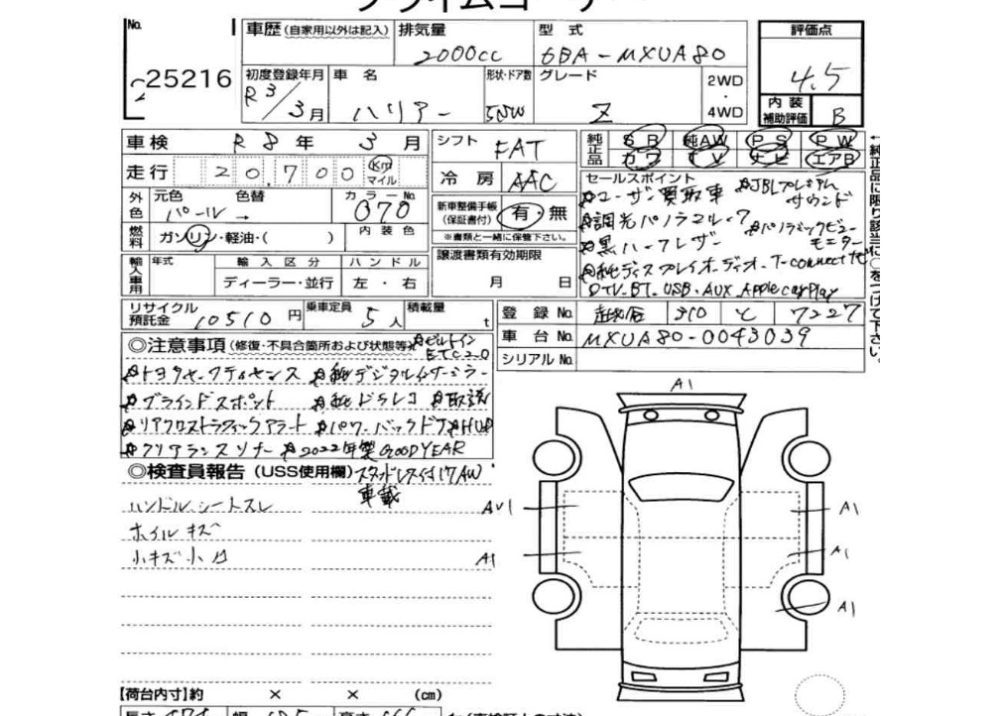 プライムコーナー
No. 車歴 (自家用以外は記入) 排気量 型式 評価点
25216 2000cc 6BA-MXUA80 4.5
初度登録年月 車名 形状・ドア数 グレード 2WD・4WD 内装補助評価
R3/3月 ハリアー 5SW Z B
車検 R8年 3月 シフト FAT 純正品 SB 純AW PS PW
カワ TV ナビ エアB
走行 20,700 Km マイル 冷房 AAC
セールスポイント
外色 元色 色替 カラーNo. 新車整備手帳(保証書付) 有・無
パール → 070
※書類と一緒に保管下さい。
燃料 ガソリン・軽油・( ) 内装色
輸入車用 年式 輸入区分 ハンドル 譲渡書類有効期限
ディーラー・並行 左・右 月 日
ユーザー買取車 JBLプレミアムサウンド
調光パノラマルーフ パノラミックビューモニター
黒ハーフレザー
純ディスプレイオーディオ T-connect
DTV.BT.USB.AUX.Apple carplay
←純正品に限り該当に○をつけて下さい。
リサイクル預託金 10510円 乗車定員 5人 積載量 t
登録No. 310 7227
車台No. MXUA80-0043039
シリアルNo.
◎注意事項 (修復・不具合箇所および状態等) ビルトインETC2.0
トヨタセーフティセンス 純デジタルインナーミラー
ブラインドスポット 純ドラレコ 取説
リアクロストラフィックアラート パワーバックドア HUD
クリアランスソナー 2022年製GOODYEAR
◎検査員報告 (USS使用欄) スタッドレスタイヤ17AW
車載
ハンドル、シートスレ
ホイルキズ
小キズ小凹
A1
AV1 A1
A1 A1
A1
【荷台内寸】約 × × (cm)
長さ 幅 高さ